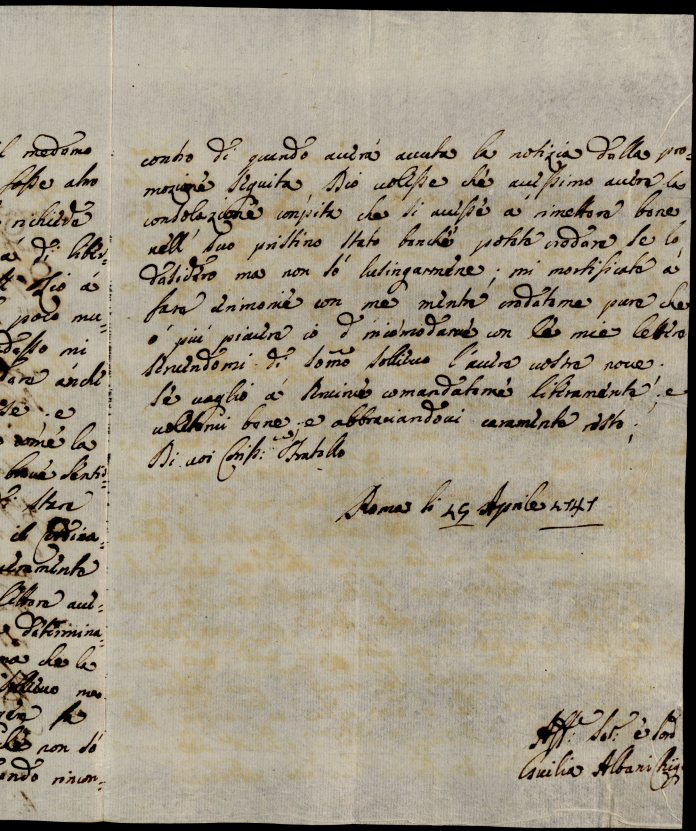 l medemo
fosse altro
richiede
á di liber=
poco
dasso mi
dare anche
se . e
come la
breve senti=
Stare
il Cardina=
veramente
lettere aue=
determina=
ma che la
sollievo me=
che non só
ando rincon=
contro di quando averá avuta la notizia della pro=
mozione seguita Dio volesse che avessimo avere la
consolazione conpita che si avesse á rimettere bene
nell' suo pristino stato benche potete credere se ló
desidero ma non só lusingarmene ; mi mortificate á
fare cerimonie con me mentre credeteme pure che
ó piú piacere io d' incomodarvi con le mie lettere
servendomi di sommo sollievo l'avere vostre nove .
se vaglio á servirvi comandateme liberamente ; e
voletemi bene ; e abbraciandovi caramente resto ;
Di voi Cariss: Fratello
Roma li 29 Aprile 1747
Aff: Ser: e Sor
Giulia Albani Chigi